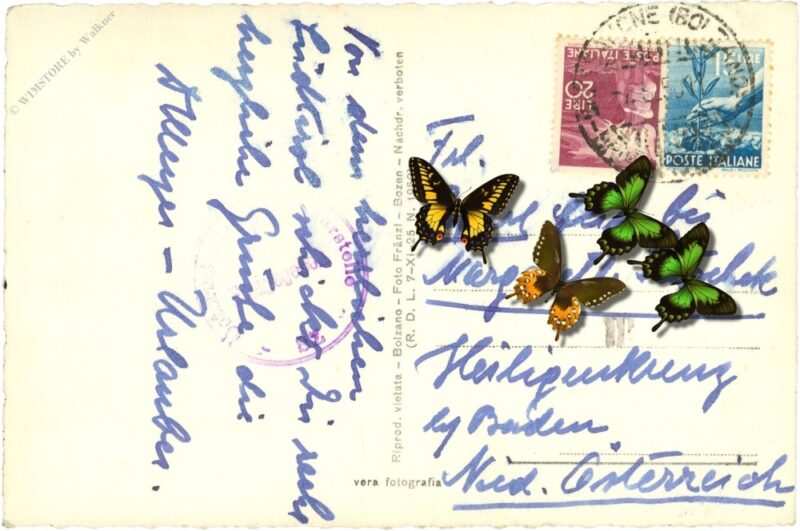 © WIMSTORE by Walkner
Von dem herrlichen
Südtirol schicken Dir recht
herzliche Grüße die
Allergo - Urlauber.
Riprod. vietata – Bolzano – Foto Fränzl – Bozen – Nachdr. verboten
(R. D. L. 7-XI-25 N. 195
vera fotografia
LIRE 20
POSTE ITALIANE
POSTE ITALIANE
(BOLZANO)
Frl.
Heiligenkreuz
b/ Baden
Nied. Österreich